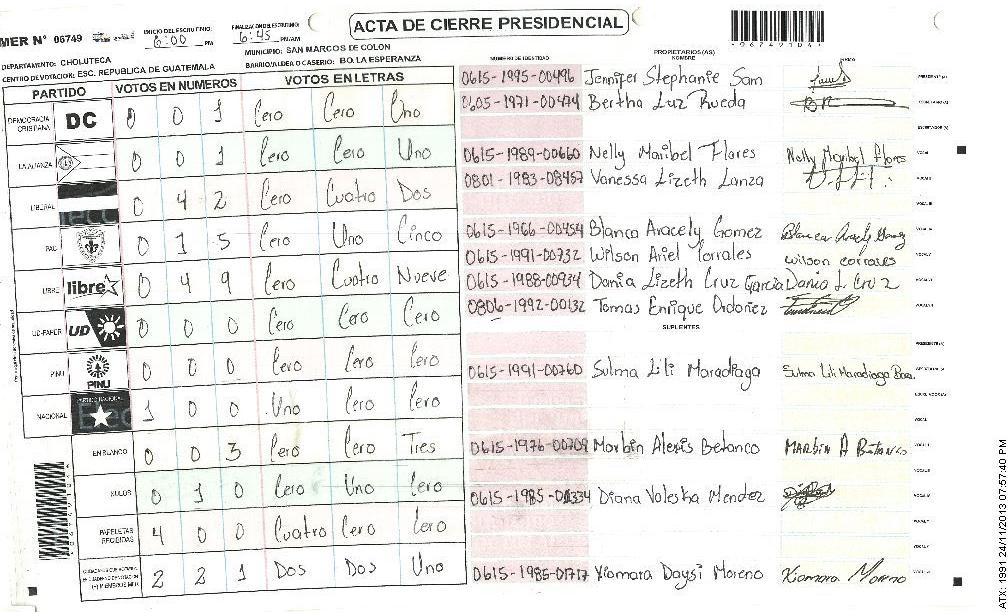 ACTA DE CIERRE PRESIDENCIAL
MER N° 06749
INICIO DEL ESCRUTINIO: 6:00 PM
FINALIZACION DEL ESCRUTINIO: 6:45 PM/AM
DEPARTAMENTO: CHOLUTECA
MUNICIPIO: SAN MARCOS DE COLON
CENTRO DE VOTACION: ESC. REPUBLICA DE GUATEMALA
BARRIO/ALDEA O CASERIO: BO.LA ESPERANZA
PARTIDO VOTOS EN NUMEROS VOTOS EN LETRAS
DEMOCRACIA CRISTIANA DC 0 0 1 Cero Cero Uno
LA ALIANZA 0 0 1 Cero Cero Uno
LIBERAL 0 4 2 Cero Cuatro Dos
PAC 0 1 5 Cero Uno Cinco
LIBRE libre 0 4 9 Cero Cuatro Nueve
UD-FAPER UD 0 0 0 Cero Cero Cero
PINU PINU 0 0 0 Cero Cero Cero
NACIONAL PARTIDO NACIONAL 1 0 0 Uno Cero Cero
EN BLANCO 0 0 3 Cero Cero Tres
NULOS 0 1 0 Cero Uno Cero
PAPELETAS RECIBIDAS 4 0 0 Cuatro Cero Cero
2 2 1 Dos Dos Uno
NUMERO DE IDENTIDAD PROPIETARIOS(AS) NOMBRE
0615-1995-00496 Jennifer Stephanie Sam PRESIDENTE(A)
0605-1971-00474 Bertha Luz Rueda BR SECRETARIO(A)
ESCRUTADOR(A)
0615-1989-00660 Nelly Maribel Flores Nelly Maribel Flores
0801-1983-08457 Vanessa Lizeth Lanza
0615-1966-00454 Blanca Aracely Gomez Blanca Aracely Gomez
0615-1991-00732 Wilson Ariel Torrales wilson corrales
0615-1988-00934 Dania Lizeth Cruz Garcia Dania L. Cruz
0806-1992-00132 Tomas Enrique Ordoñez
SUPLENTES
0615-1991-00760 Sulma Lili Maradiaga Sulma Lili Maradiaga
0615-1976-00709 Marbin Alexis Betanco MARBIN A Betanco
0615-1985-00334 Diana Valeska Mendez
0615-1985-01717 Xiomara Daysi Moreno Xiomara Moreno
ATX: 1991 24/11/2013 07:57:40 PM